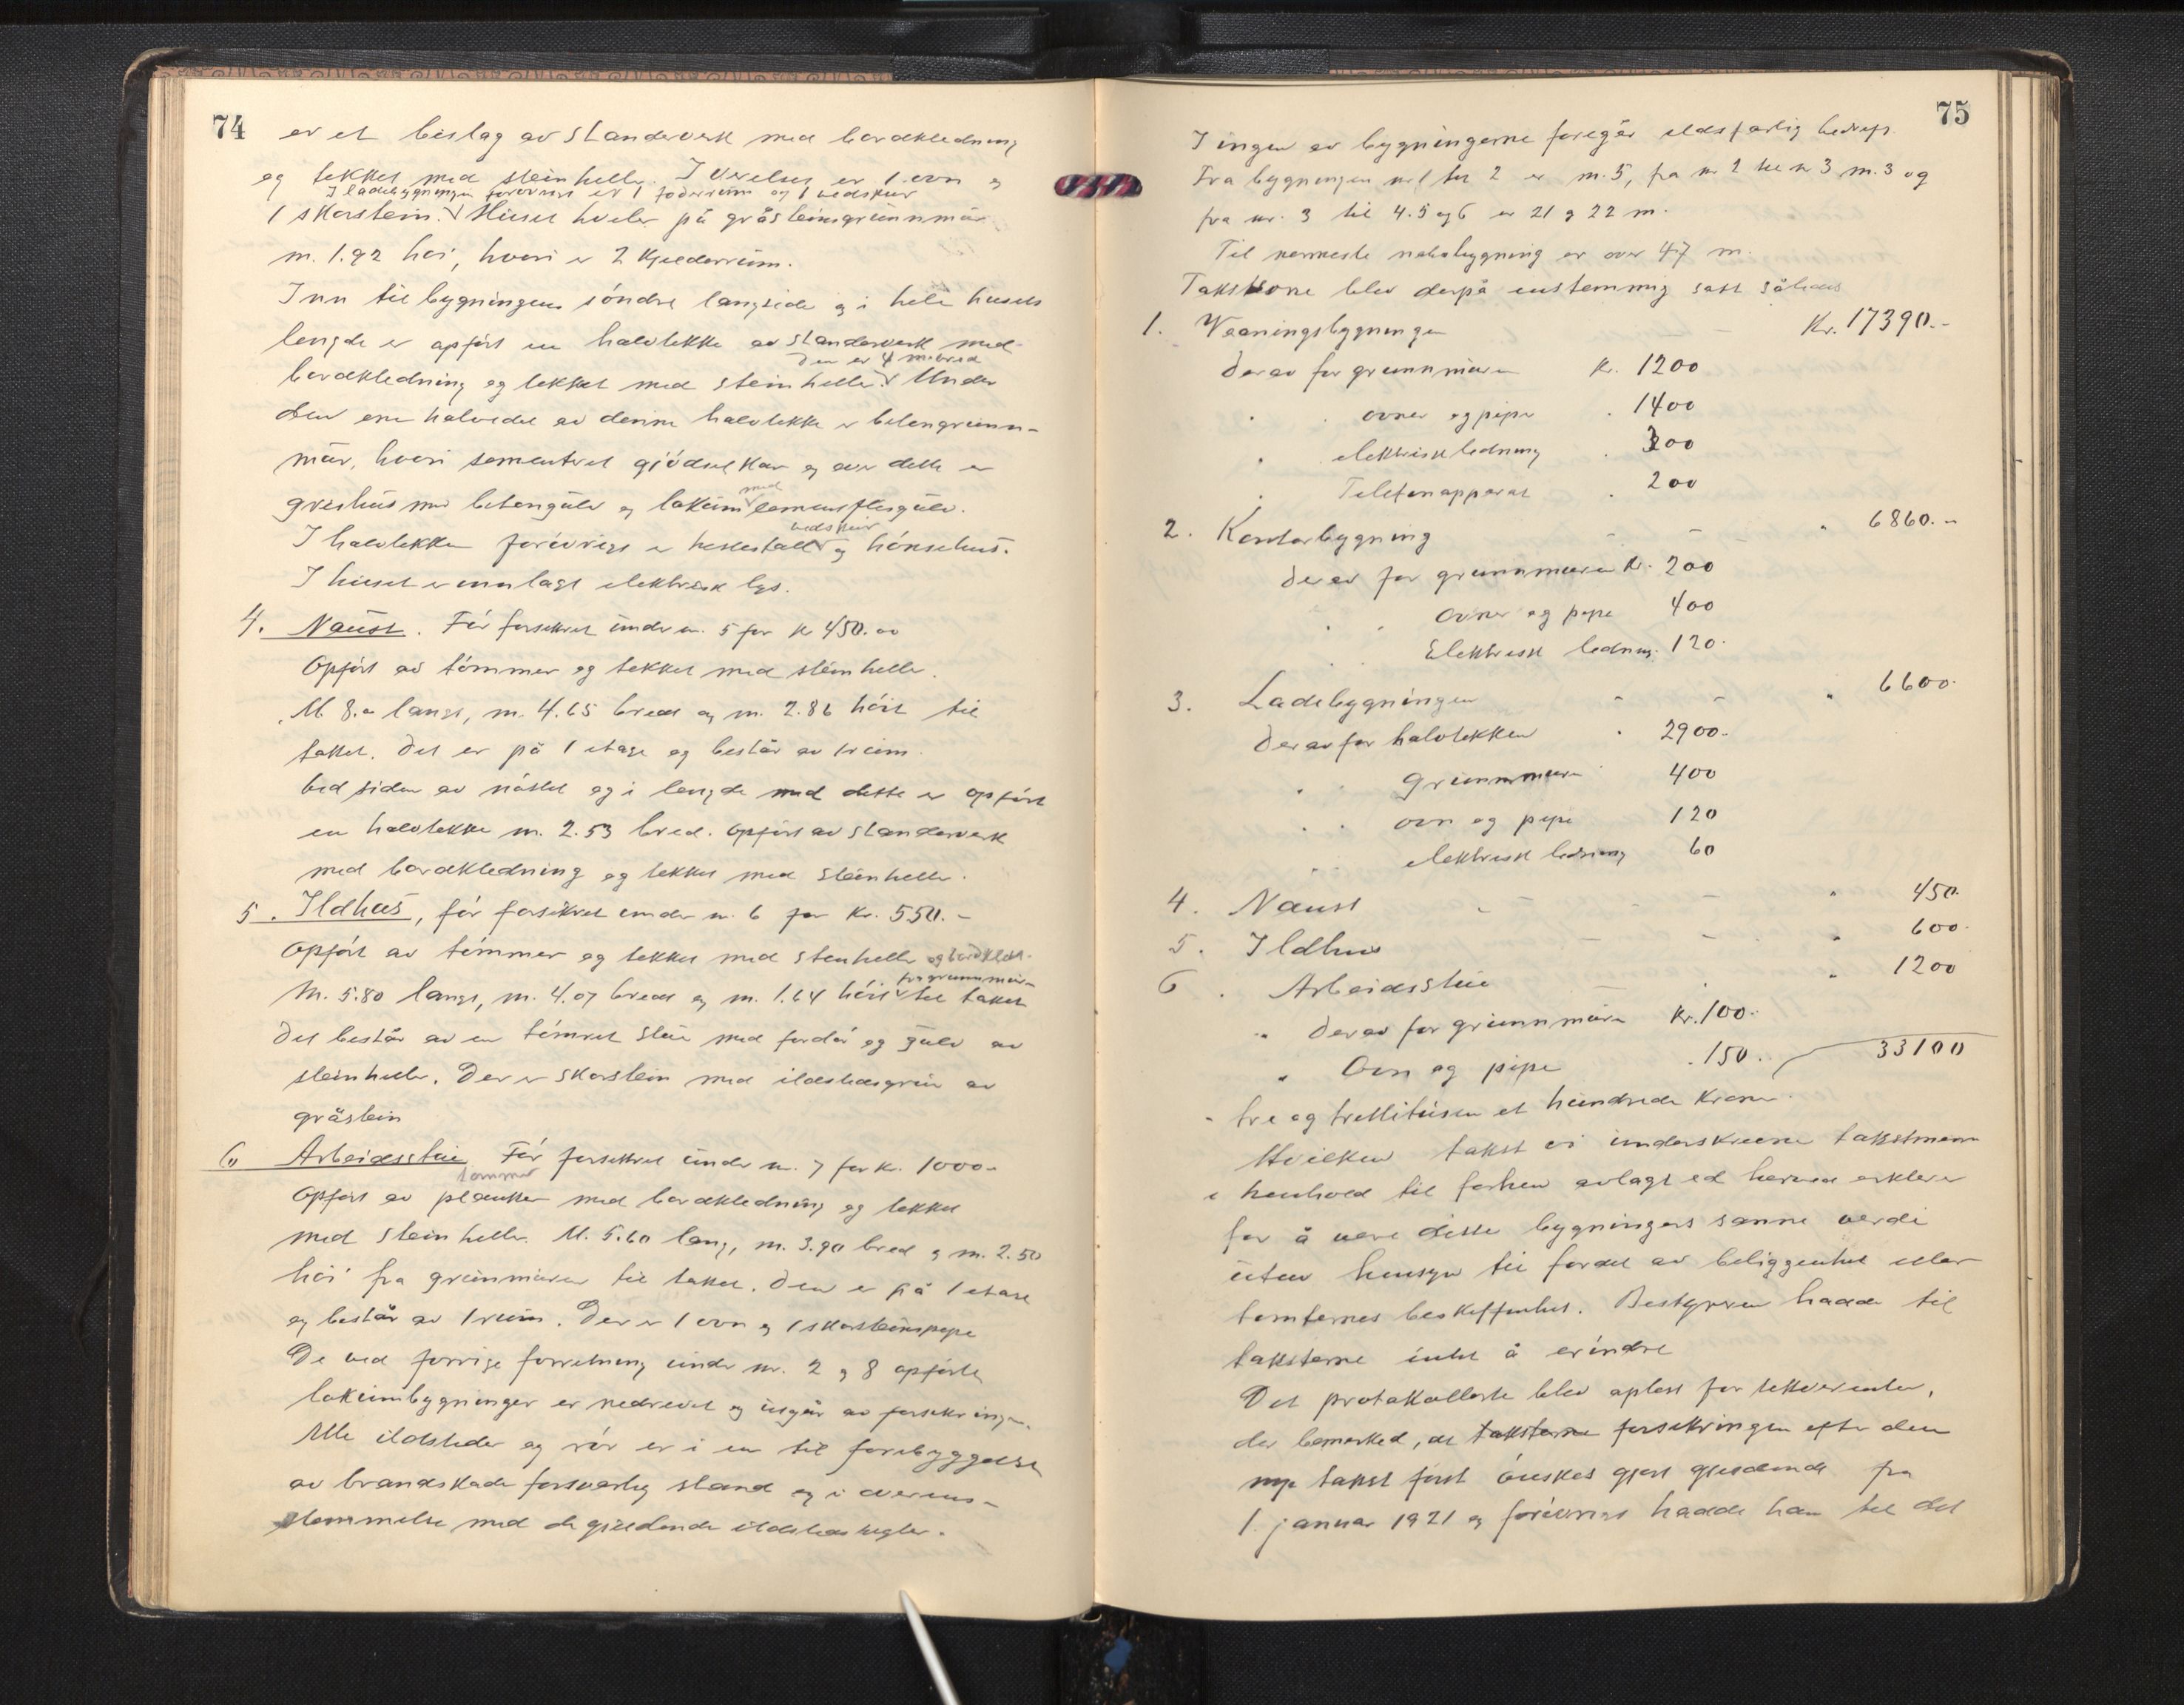 74
er et bislag av standerverk med bordkledning
og tekket med steinheller. I verelset er 1 ovn og
I ladebygningen forøvrigt er 1 foderrum og 1 vedskur
1 skorstein. Huset hviler på gråsteinsgrunnmur
m. 1.92 höi, hvori er 2 kjelderrum.
Inn til bygningens söndre langside og i hele husets
lengde er opfört en halvtekke av standerverk med
den er 4 m. bred
bordkledning og tekket med steinheller. Under
den ene halvedel av denne halvtekke er betongrunn-
mur, hvori sementeret gjödselkar og over dette er
med
grishus med betongulv og lokum sementflisgulv.
vedskur
I halvtekken forövrigt er hestestall og hönsehus.
I huset er innlagt elektrisk lys.
4. Naust. För forsikret under nr. 5 for kr 450.00
Opfört av tömmer og tekket med steinheller.
M. 8.00 langt, m. 4.65 bredt og m. 2.86 höit til
taket. Det er på 1 etage og består av 1 rum.
Ved siden av nöstet og i lengde med dette er opfört
en halvtekke m. 2.53 bred. Opfört av standerverk
med bordkledning og tekket med steinheller.
5. Ildhus, för forsikret under nr. 6 for Kr. 550.-
Opfört av tömmer og tekket med steinheller og bordkledt.
fra grunnmur
M. 5.80 langt, m. 4.07 bredt og m. 1.64 höit til taket
Det består av en tömret stue med fordör og gulv av
steinheller. Der er skorstein med ildstedsgrue av
gråstein
6. Arbeidsstue För forsikret under nr. 7 for kr. 1000.-
tømmer
Opfört av planker med bordkledning og tekket
med steinheller. M. 5.60 lang, m. 3.90 bred og m. 2.50
höi fra grunnmuren til taket. Den er på 1 etage
og består av 1 rum. Der er 1 ovn og 1 skorsteinspipe
De ved forrige forretning under nr. 2 og 8 opførte
lokumbygninger er nedrevet og utgår av forsikringen.
Alle ildsteder og rör er i en til forebyggelse
av brandskade forsvarlig stand og i overens-
stemmelse med de gjeldende ildstedsregler.
75
I ingen av bygningerne foregår ildsfarlig bedrift.
Fra bygningen nr 1 til 2 er m. 5, fra nr 2 til nr 3 m. 3 og
fra nr. 3 til 4. 5 og 6 er 21 og 22 m.
Til nermeste nabobygning er over 47 m.
Takstene blev derpå enstemmig satt således
1. Vaaningsbygningen Kr. 17390.-
Derav for grunnmuren Kr. 1200
" " ovner og piper " 1400
" " elektrisk ledning " 300
" Telefonapparat " 200
2. Kontorbygning - - " 6860.-
Derav for grunnmuren kr. 200
" " ovner og pipe 400
" " Elektrisk ledning. 120.
3. Ladebygningen - - " 6600.
Derav for halvtekken " 2900.-
" " grunnmuren 400
" " ovn og pipe 120
" " elektrisk ledning 60
4. Naust - - - " 450.
5. Ildhus - - " 600.
6. Arbeidsstue - " 1200
" Derav for grunnmuren Kr. 100.
" Ovn og pipe " 150. 33100
- tre og trettitusen et hundrede kroner.
Hvilken takst vi underskrevne takstmenn
i henhold til forhen avlagt ed herved erklerer
for å vere disse bygningers sanne verdi
uten hensyn til fordel av beliggenhet eller
tomternes beskaffenhet. Bestyreren hadde til
taksterne intet å erindre
Det protokollerte blev oplest for rekvirenten,
der bemerket, at taksterne forsikringen efter den
nye takst först önskes gjort gjeldende fra
1. januar 1921 og forövrigt hadde han til det